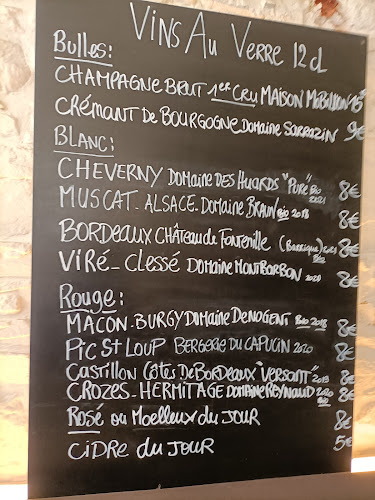 Vins Au Verre 12 cl
Bulles:
CHAMPAGNE BRUT 1er CRU MAISON MOBILLION 15€
CRÉMANT De BOURGOGNE Domaine Sarrazin 9€
BLANC:
CHEVERNY Domaine des Huards "Pure" Bio 2021 8€
MUSCAT - ALSACE. Domaine Braun Bio 2018 8€
BORDEAUX CHÂteau de Fontenille (Barrique) 2021 8€
VIRÉ - CLESSÉ Domaine MONTBARBON 2020 8€
Rouge:
MACON - BURGY Domaine DeNOGENT Bio 2018 8€
PIC St LOUP BERGERIE DU CAPUCIN 2020 8€
CASTILLON CÔTES De BORDEAUX "VERSANT" 2019 8€
CROZES - HERMITAGE DOMAINE REYNAUD 2020 Bio 8€
Rosé ou Moelleux du JOUR 8€
CIDRE du JOUR 5€